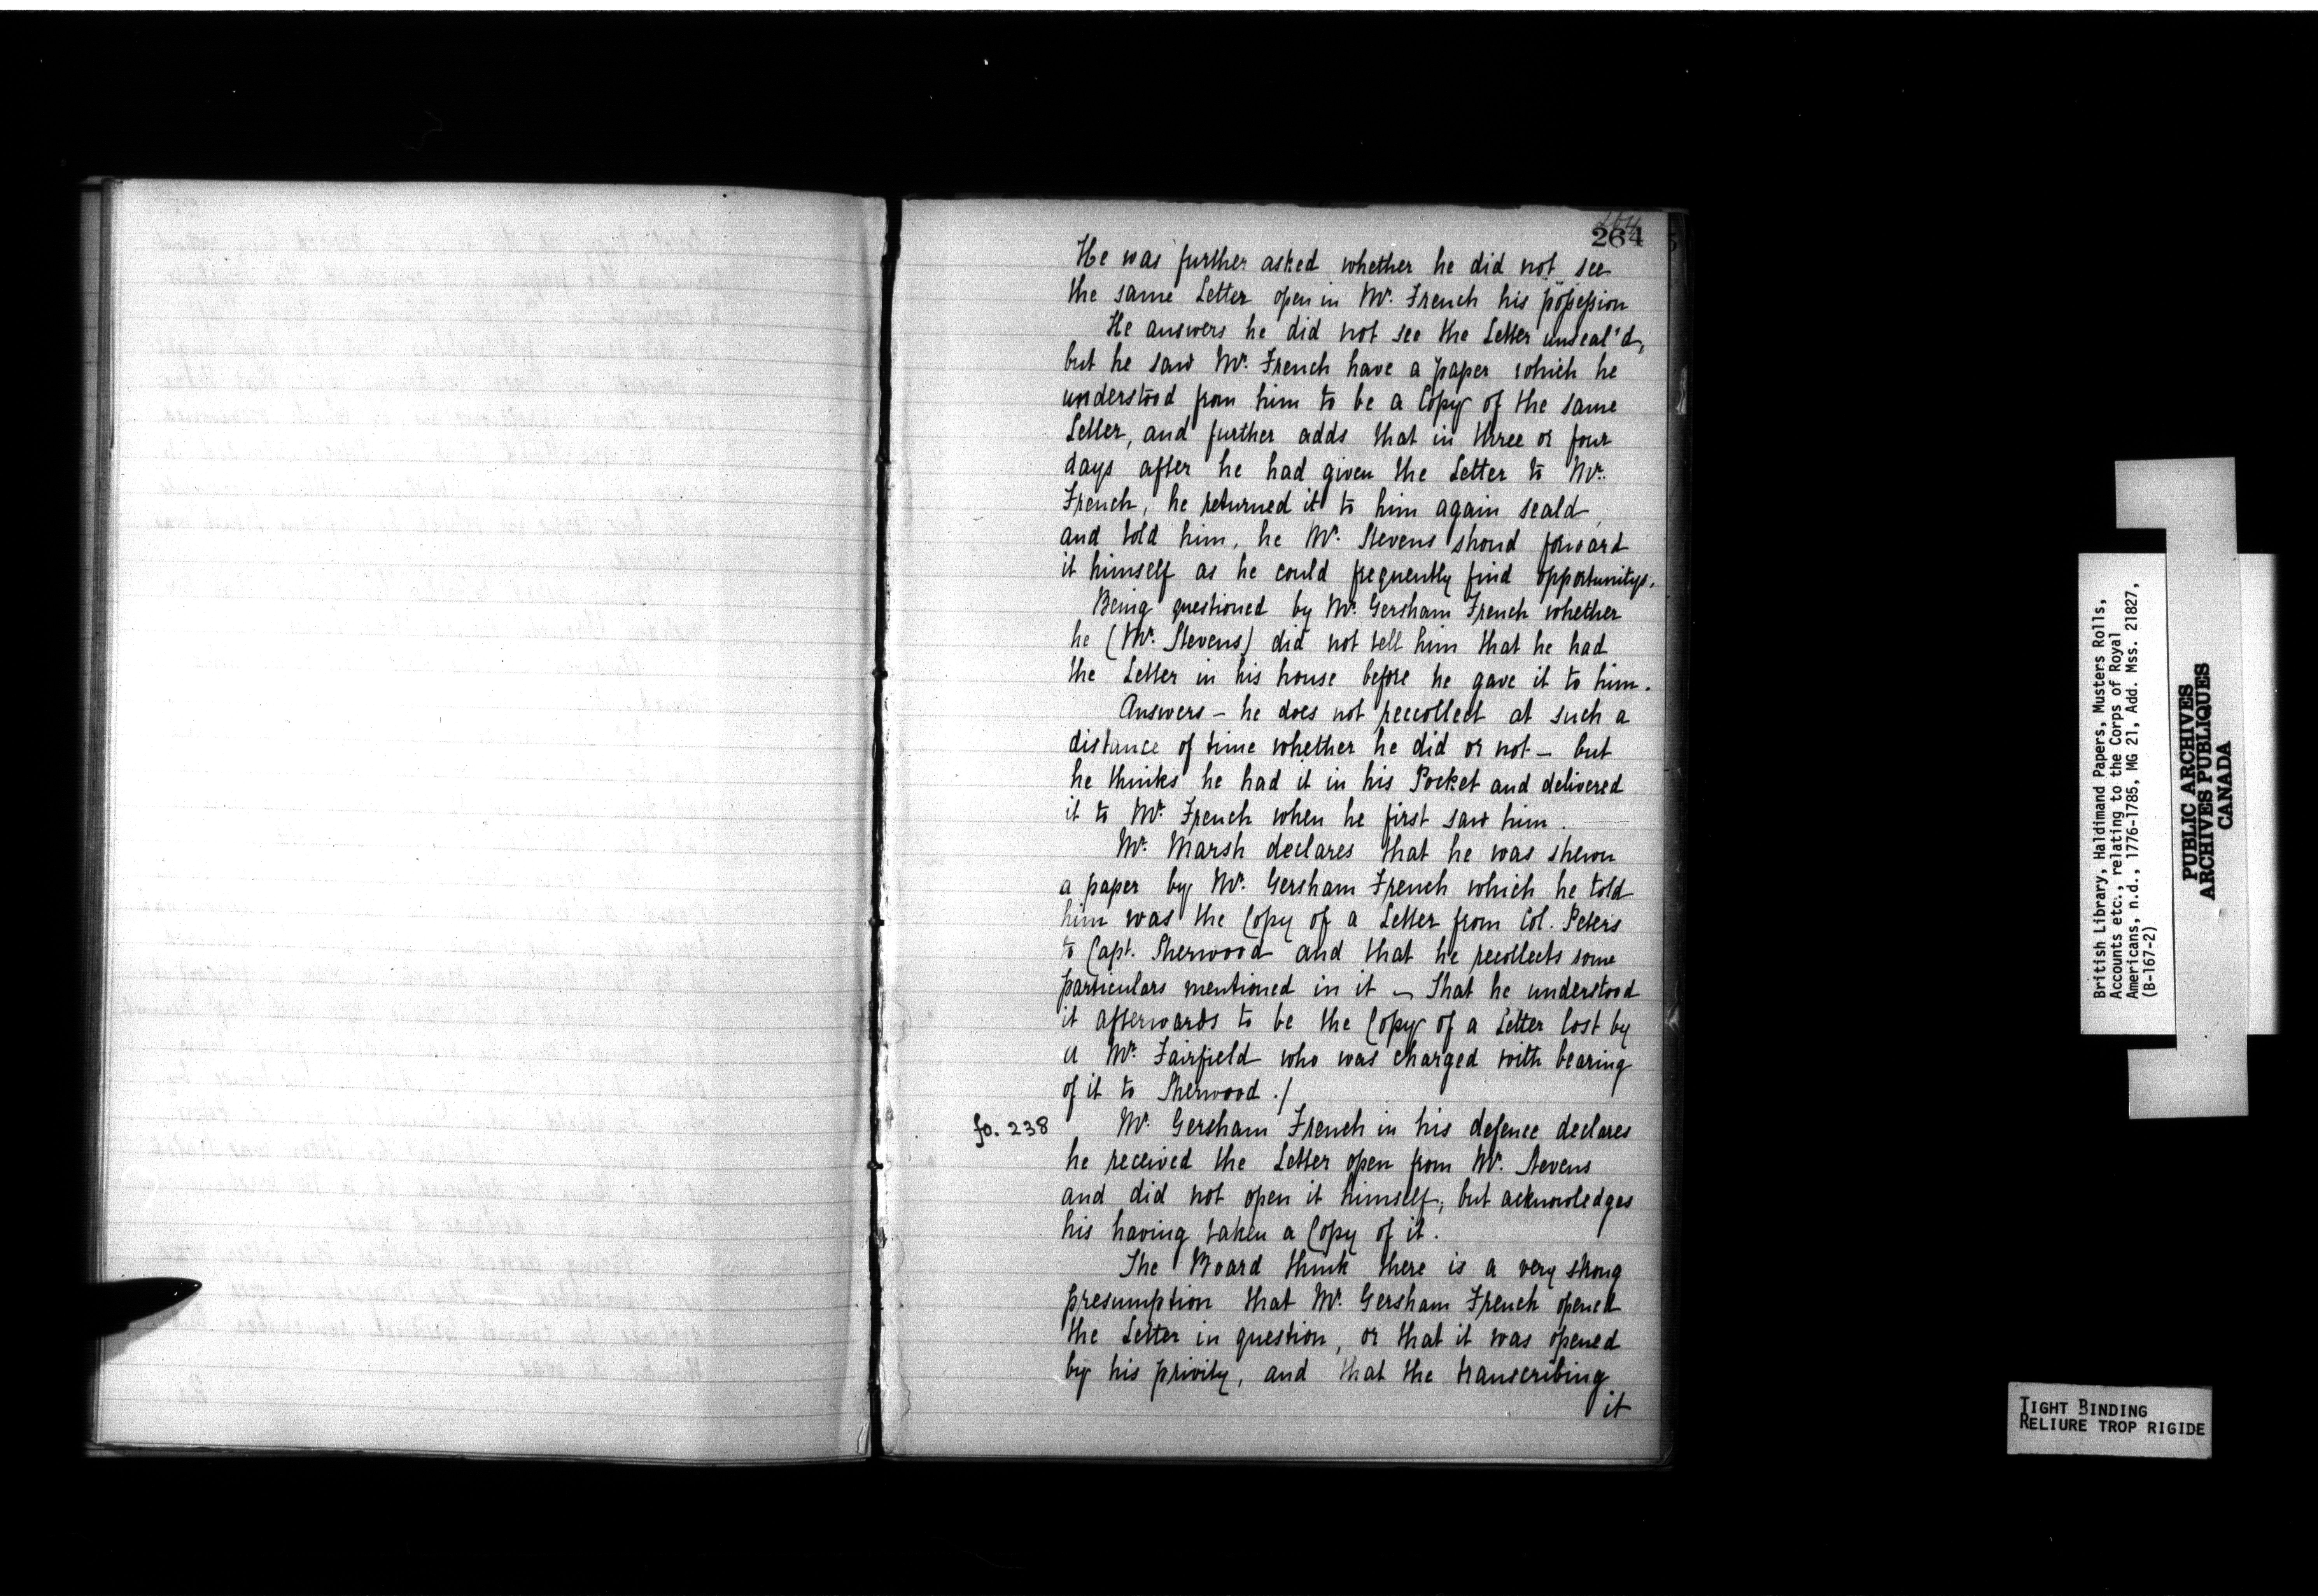 264
264
He was further asked whether he did not see
the same Letter open in Mr. French his possession
He answers he did not see the Letter unseal'd,
but he saw Mr. French have a paper which he
understood from him to be a Copy of the same
Letter, and further adds that in three or four
days after he had given the Letter to Mr.
French, he returned it to him again seald,
and told him, he Mr. Stevens shoud forward
it himself as he could frequently find opportunitys.
Being questioned by Mr. Gersham French whether
he (Mr. Stevens) did not tell him that he had
the Letter in his house before he gave it to him.
Answers — he does not reccollect at such a
distance of time whether he did or not — but
he thinks he had it in his Pocket and delivered
it to Mr. French when he first saw him.
Mr. Marsh declares that he was shewn
a paper by Mr. Gersham French which he told
him was the Copy of a Letter from Col. Peters
to Capt. Sherwood and that he recollects some
particulars mentioned in it — That he understood
it afterwards to be the Copy of a Letter lost by
a Mr. Fairfield who was charged with bearing
of it to Sherwood ./
fo. 238
Mr. Gersham French in his defence declares
he received the Letter open from Mr. Stevens
and did not open it himself, but acknowledges
his having taken a Copy of it.
The Board think there is a very strong
presumption that Mr. Gersham French opened
the Letter in question, or that it was opened
by his privity, and that the transcribing
it
British Library, Haldimand Papers, Musters Rolls,
Accounts etc., relating to the Corps of Royal
Americans, n.d., 1776-1785, MG 21, Add. Mss. 21827,
(B-167-2)
PUBLIC ARCHIVES
ARCHIVES PUBLIQUES
CANADA
TIGHT BINDING
RELIURE TROP RIGIDE